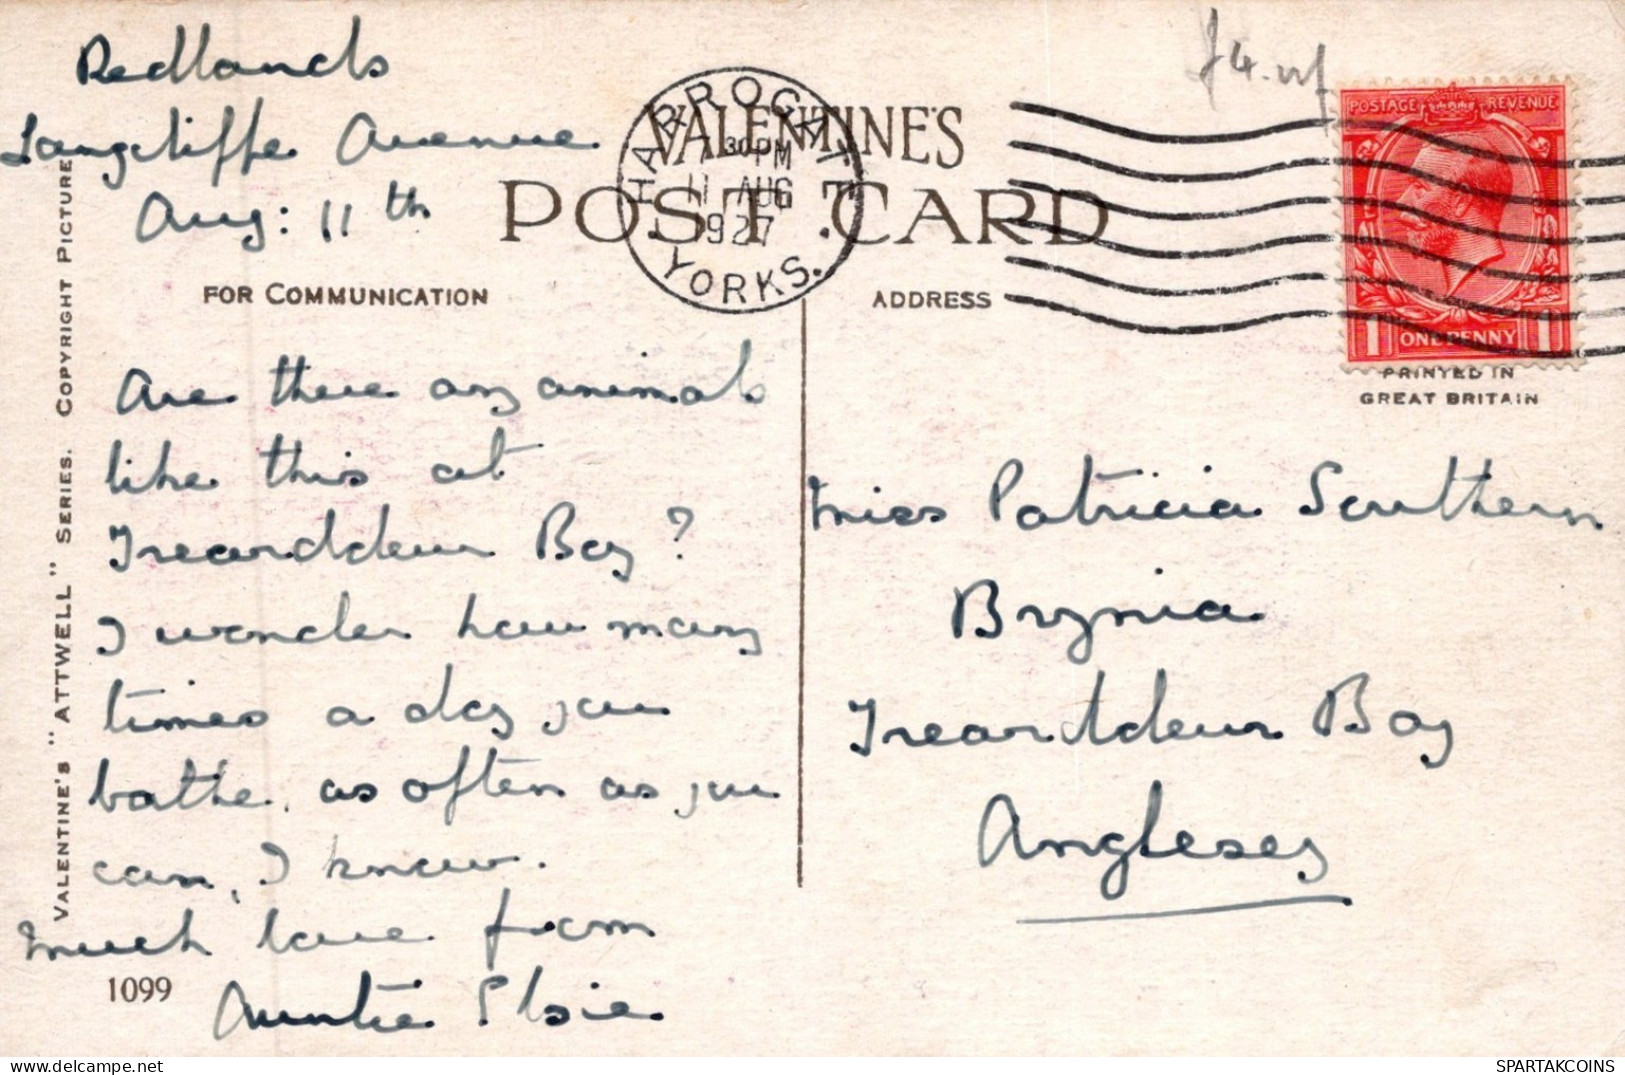 Redlands
Langcliffe Avenue
Aug: 11th
VALENTINE'S
POST CARD
HARROGATE
30 PM
11 AUG
1927
YORKS.
FOR COMMUNICATION
ADDRESS
POSTAGE REVENUE
1 ONE PENNY 1
PRINTED IN
GREAT BRITAIN
VALENTINE'S "ATTWELL" SERIES. COPYRIGHT PICTURE
Are there any animals
like this at
Trearddeur Bay?
I wonder how many
times a day you
bathe, as often as you
can, I know.
Much love from
Auntie Elsie
1099
Miss Patricia Southern
Brynia
Treartdeur Bay
Anglesey
eBay.com
SPARTAKCOINS